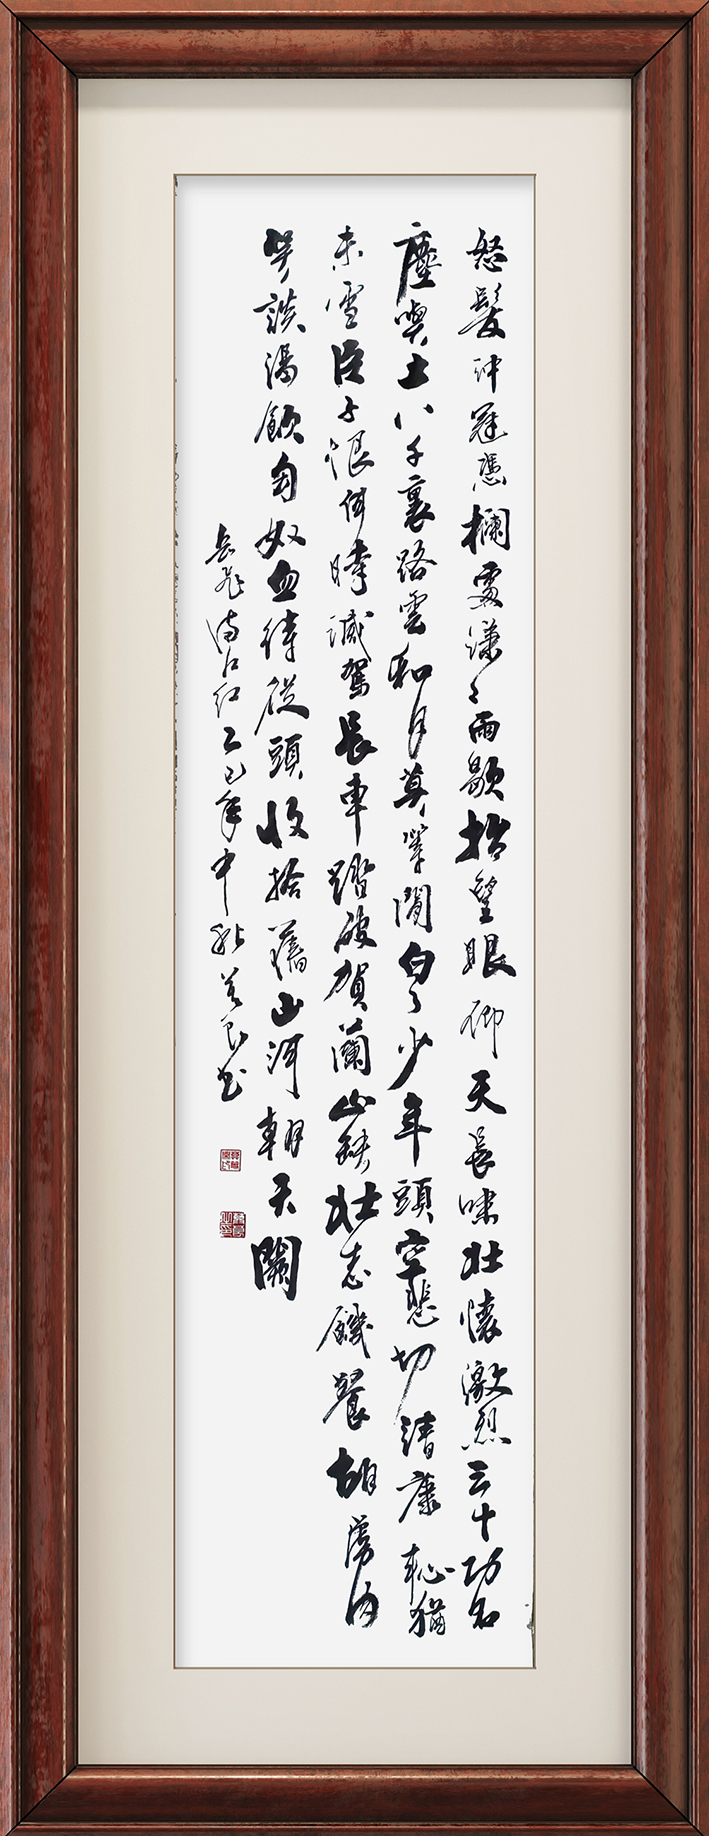 怒髮沖冠憑欄處瀟々雨歇抬望眼仰天長嘯壯懷激烈三十功名
塵與土八千裏路雲和月莫等閒白了少年頭空悲切靖康恥猶
未雪臣子恨何時滅駕長車踏破賀蘭山缺壯志饑餐胡虜肉
笑談渴飲匈奴血待從頭收拾舊山河朝天闕
岳飛滿江紅乙巳年中秋良书